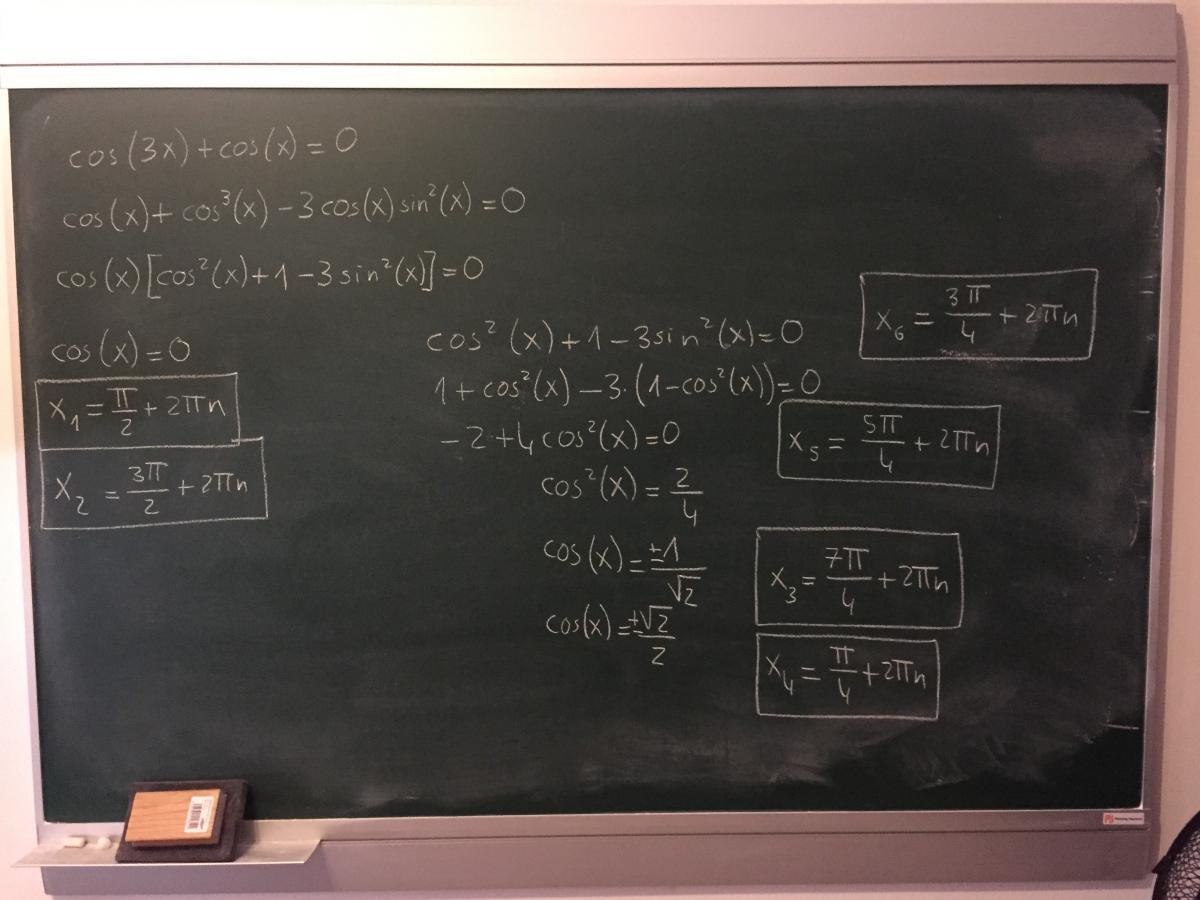 cos(3x)+cos(x)=0
cos(x)+cos³(x)-3cos(x)sin²(x)=0
cos(x)[cos²(x)+1-3sin²(x)]=0
cos(x)=0
x₁=π/2+2πn
x₂=3π/2+2πn
cos²(x)+1-3sin²(x)=0
1+cos²(x)-3·(1-cos²(x))=0
-2+4cos²(x)=0
cos²(x)=2/4
cos(x)=±1/√2
cos(x)=±√2/2
x₆=3π/4+2πn
x₅=5π/4+2πn
x₃=7π/4+2πn
x₄=π/4+2πn